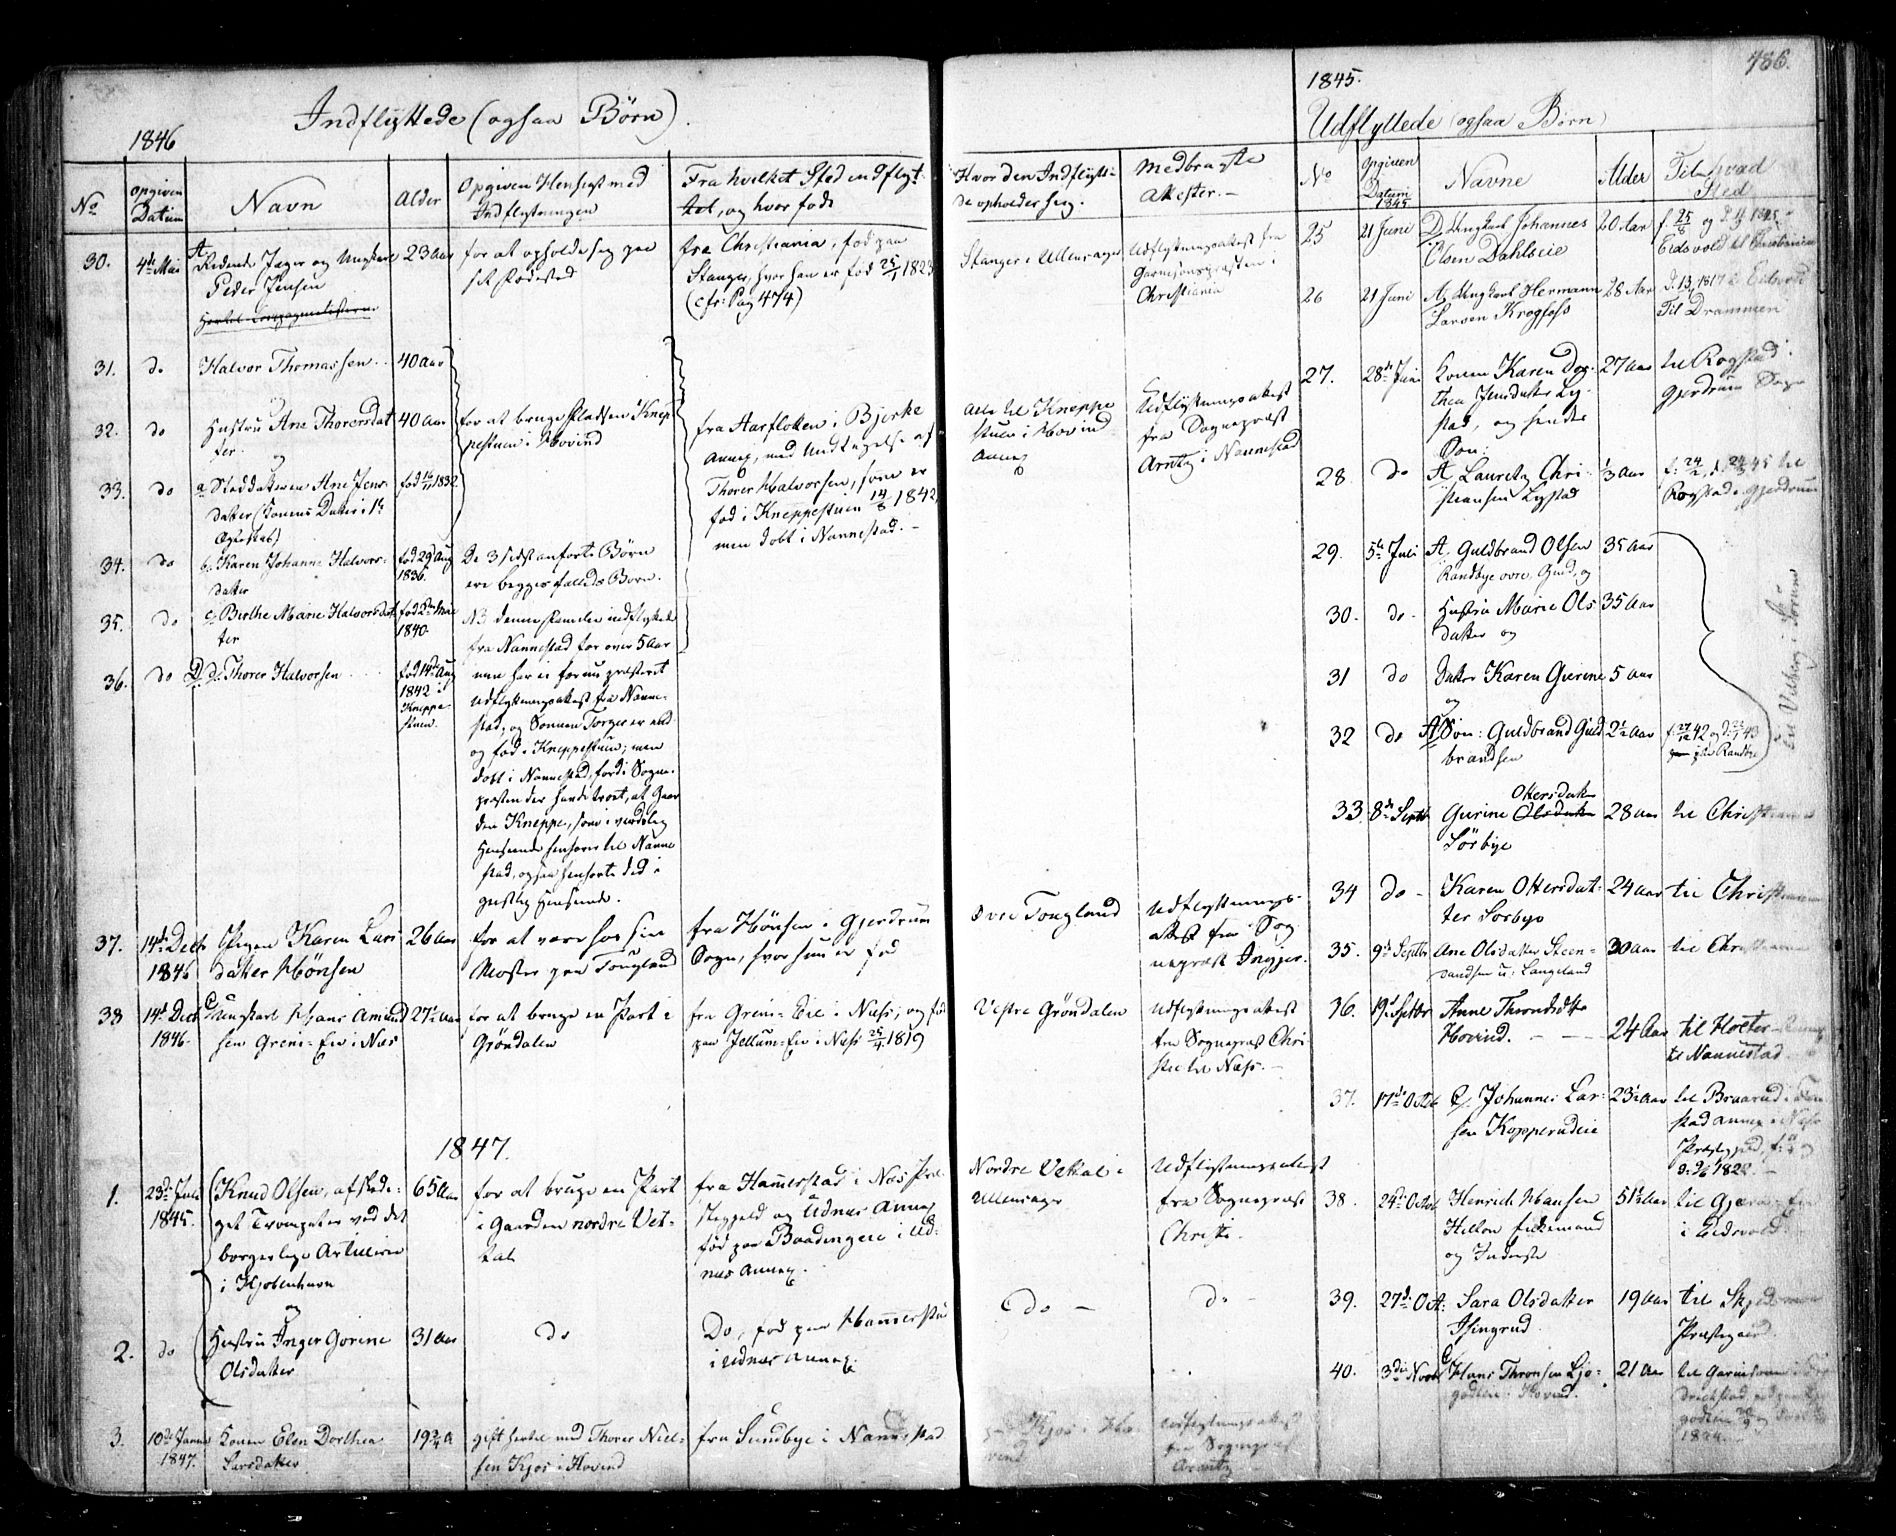 1846
Indflyttede (ogsaa Børn).
No
opgiven Datum
Navn
Alder
Opgiven Hensigt med Indflytningen
Fra hvilket Sted indflyttet, og hvor født
Hvor den Indflyttede opholder sig.
Medbragte Attester.
30.
4de Mai
Peder Jensen
23 Aar
for at opholde sig paa
sit Fødested
fra Christiania, født paa
Stanger, hvor han er født 25/1 1823
(cfr: Pag 474)
Stanger i Ullensager
Udflytningsattest fra
Garnisonspræsten i
Christiania
31.
do
Halvor Thomassen
40 Aar
32.
do
Hustru Ane Thorersdat
ter.
og
40 Aar
for at bruge Pladsen Knep
pestuen i Hovind
fra Aarfloten i Bjerke
Annex, med Undtagelse af
Thorer Halvorsen, som er
født i Kneppestuen 14/8 1842,
men døbt i Nannestad.
Alle til Kneppe
stuen i Hovind
Annex
Udflytningsattest
fra Sognepræst
Arntz i Nannestad
33.
do
a. Steddatteren Ane Jens
datter (Konens Datter i 1ste
Ægteskab)
født 16/11 1832
34.
do
b. Karen Johanne Halvors-
datter
født 29 Aug
1836.
De 3 sidstanførte Børn
ere begges fælleds Børn.
35.
do
c. Birthe Marie Halvorsdat
ter
født 2den Mai
1840.
NB denne Familie indflyttede
fra Nannestad for over 5 Aar
36.
do
D. d. Thorer Halvorsen
født 14de Aug
1842 i
Kneppe
stuen.
men har ei før nu præsteret
Udflytningsattest fra Nanne-
stad, og Sønnen Torger er vel
og født i Kneppestuen; men
døbt i Nannestad, fordi Sogne-
præsten der havde troet, at Gaar
den Kneppe, som i verdslig
Henseende henhører til Nanne
stad, ogsaa henhørte did i
geistlig Henseende.
37.
14de Decb
1846
Pigen Karen Lars
datter Hønsen
26 Aar
for at være hos sin
Moster paa Tougland
fra Hønsen i Gjerdrum
Sogn, hvor hun er født
Øvre Tougland
Udflytnings-
attest fra Sog
nepræst Ingjer.
38
14de Decb
1846.
Ungkarl Hans Amund
sen Greni-Eie i Næs
27½ Aar
for at bruge en Part i
Grøndalen
fra Greni-Eie i Næs, og født
paa Jellum-Eie i Næs 25/4 1819
Vestre Grøndalen
Udflytningsattest
fra Sognepræst Chri
stie til Næs.
1847.
1.
23de Juli
1845.
Knud Olsen, afskede-
get Trompeter ved det
borgerlige Artilleri
i Kjøbenhavn
og
65 Aar
for at bruge en Part
i Gaarden nordre Vet-
tal
fra Hamerstad i Næs Præ-
stegjeld og Udnæs Annex
født paa Baadengeie i Ud-
næs Annex.
Nordre Vettal i
Ullensager
Udflytningsattest
fra Sognepræst
Christie.
2.
do
Hustru Inger Gorine
Olsdatter
31 Aar
do
Do, født paa Hammersta
i Udnæs Annex.
Do
do
3.
10de Januar
1847.
Konen Elen Dorthea
Larsdatter
19¾ A
gift hertil med Thorer Niel-
sen Kjos i Hovind
fra Sundbye i Nannestad
Kjos i Ho-
vind
Udflytningsattest
fra Sognepræst
Arentz
486.
1845.
Udflyttede (ogsaa Børn)
No
Opgiven Datum 1845
Navne
Alder
Til hvad Sted
25
21 Juni
D. Ungkarl Johannes
Olsen Dahlseie
20 Aar
Eidsvold til Christiania
26
21 Juni
A. Ungkarl Hermann
Larsen Krogfoss
28 Aar
Til Drammen
27.
28de Juni
Konen Karen Dor-
thea Jensdatter Ly-
stad, og hendes
Søn:
27 Aar
til Rogstad
Gjerdrum Sogn
28
do
A. Lauretz Chri-
stiansen Lystad
⅓ Aar
til
Rogstad i Gjerdrum
29.
5te Juli
A. Guldbrand Olsen
Randbye øvre, Gmd, og
35 Aar
30.
do
Hustru Marie Ols
datter og
35 Aar
31
do
Datter Karen Gurine
og
5 Aar
32
do
A. Søn: Guldbrand Guld
brandsen
2½ Aar
til Vilberg i Sørum
33.
8de Septb
Gurine Ottersdatter
Sørbye
28 Aar
til Christiania
34
do
Karen Ottersdat-
ter Sørbye
24 Aar
til Christiania
35.
9de Septbr
Ane Olsdatter Steen-
sandsen u: Langeland
30 Aar
til Christiania
36.
19de Septbr
Anne Throndsdtr
Hovind.
24 Aar
til Holter
til Nannestad
37.
17de Octob
Johannes Lar-
sen Kopperudeie
23½ Aar
til Braarud i
stad Annex i Næs
Præstegjeld
38.
24de Octob
Henrich Hansen
Hellon Enkemand
og Inderst
51½ Aar
til
i Eidsvold.
39.
27de Oct:
Sara Olsdatter
Isingrud
19 Aar
til
Præstegaard.
40.
3die Novb
Hans Thronsen Ljo-
godteie i Hovind.
21 Aar
til Garnisonen i
1824.